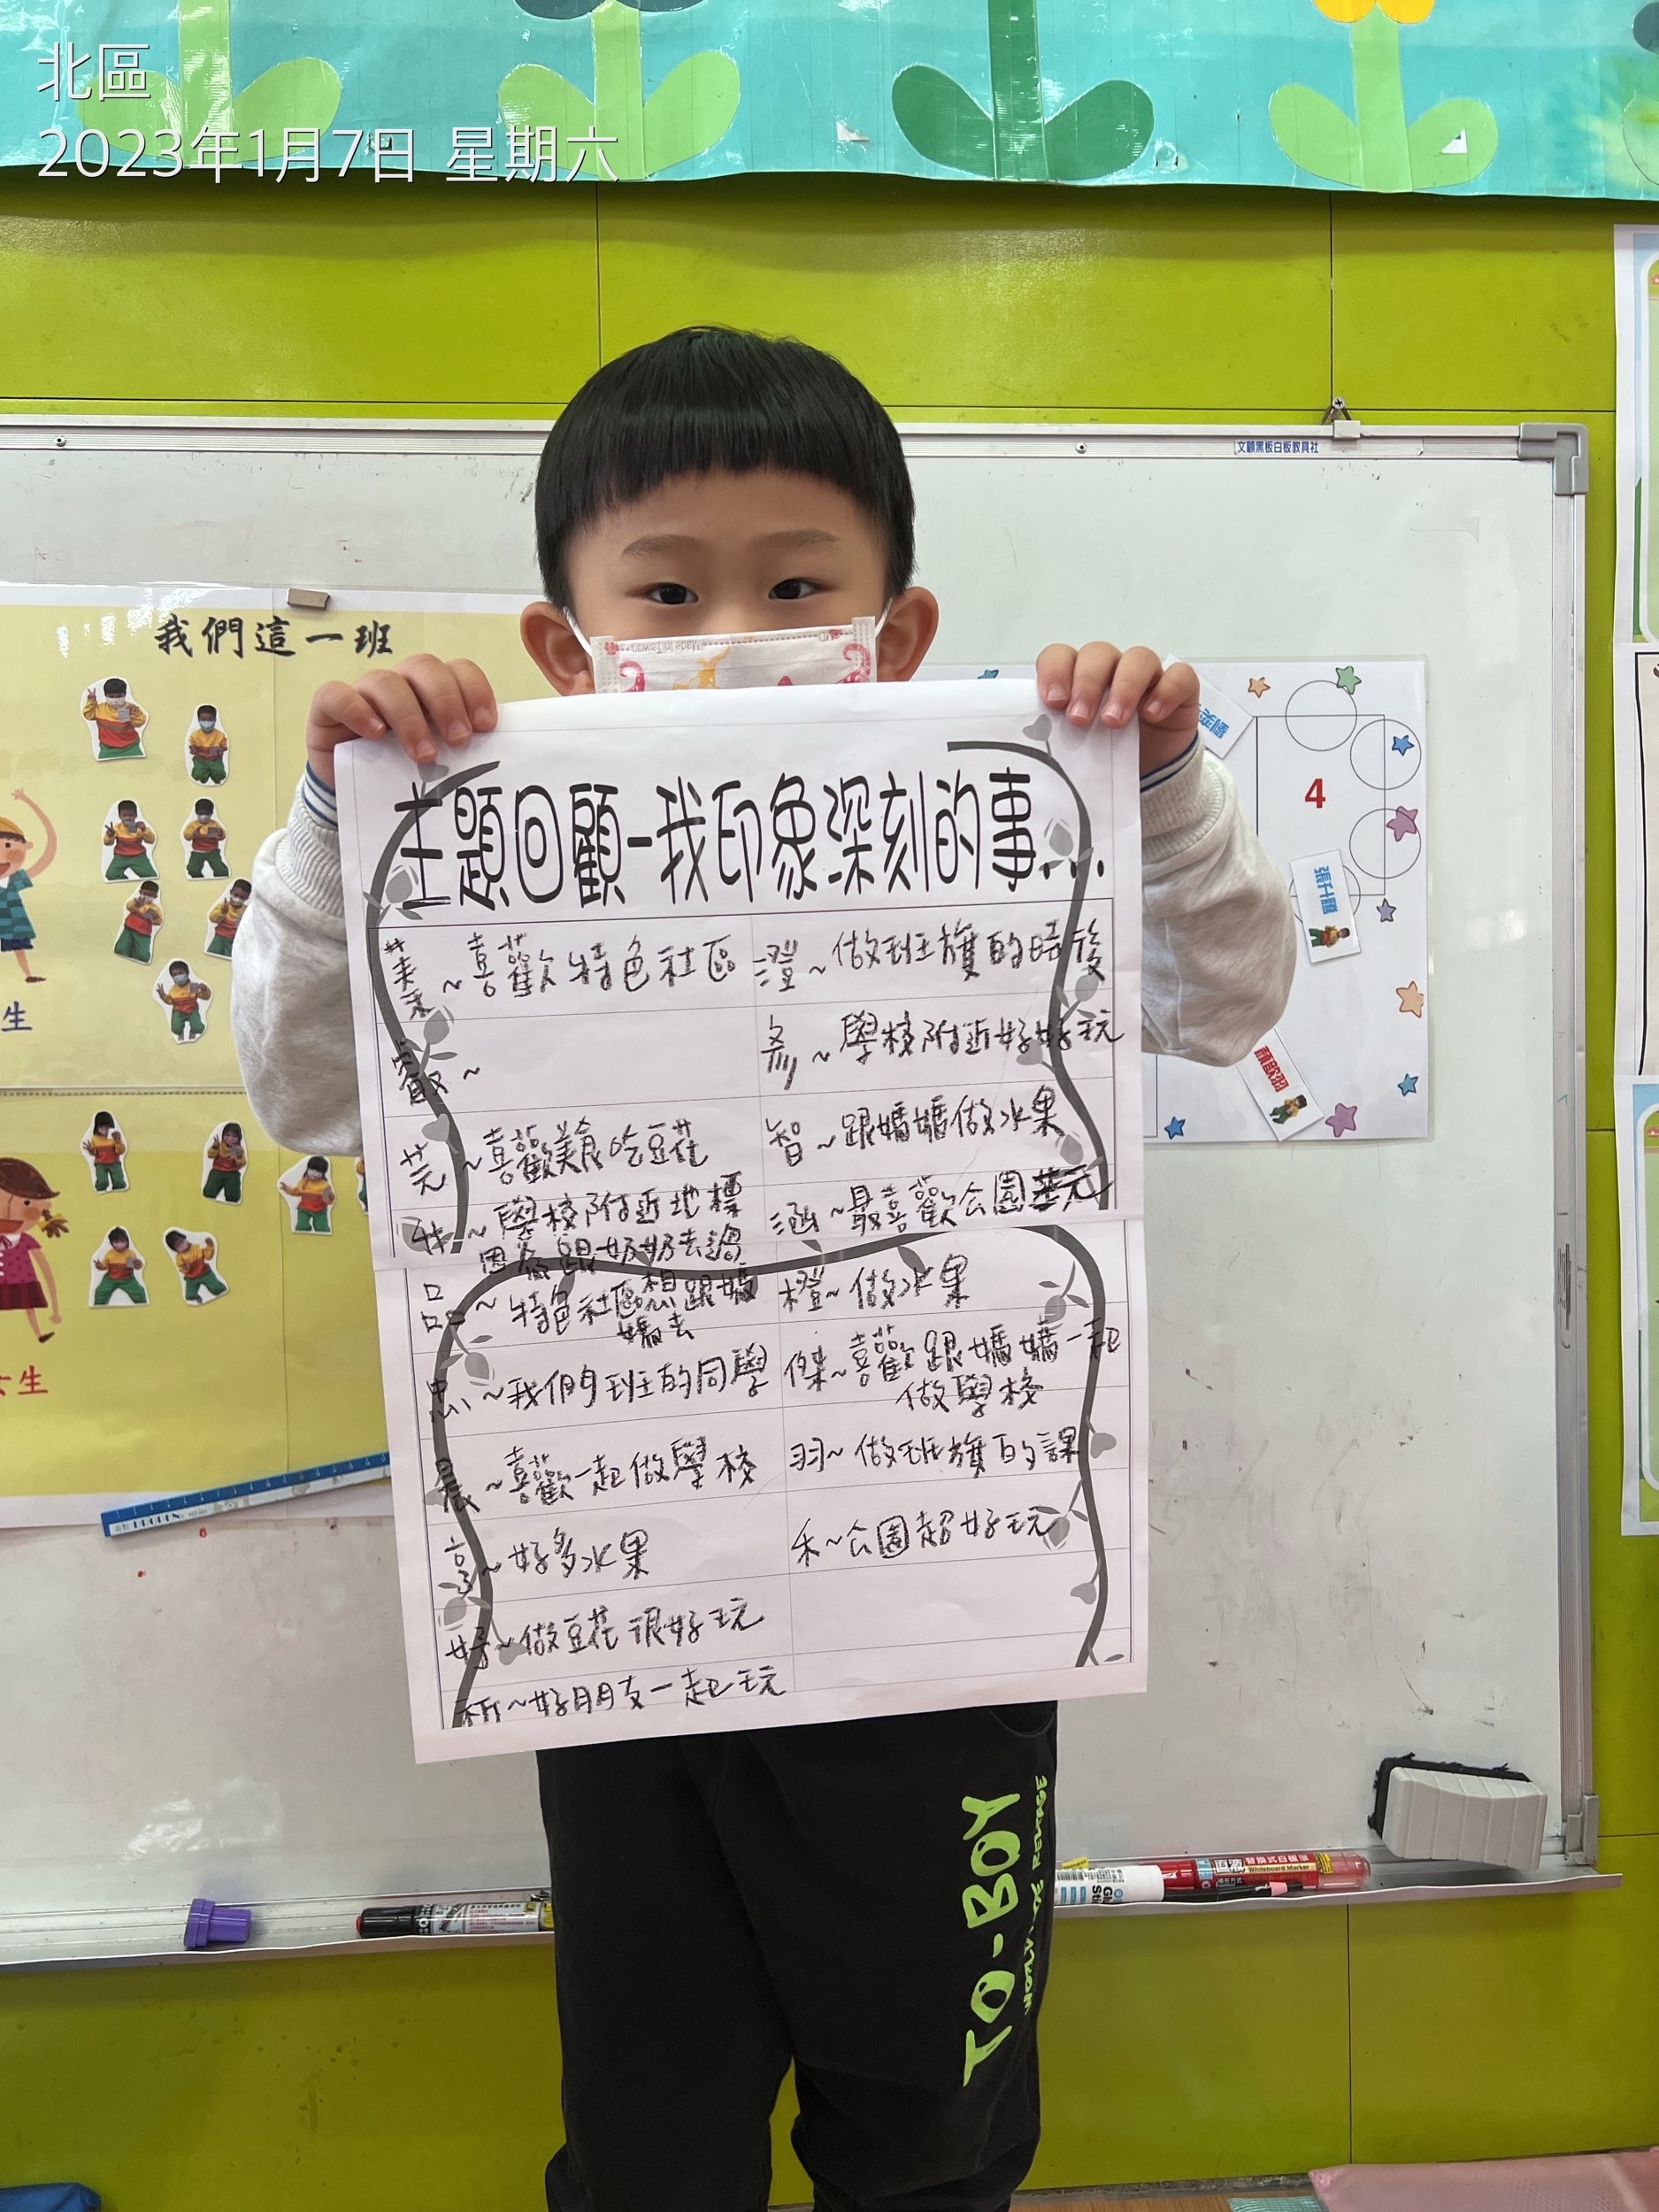 北區
2023年1月7日 星期六
文顧黑板白板教具社
我們這一班
Made In Taiwan
MD
主題回顧-我印象深刻的事...
~喜歡特色社區
叡~
芫~喜歡美食吃豆花
~學校附近地標
因為跟奶奶去過
品~特色社區想跟媽
媽去
忠~我們班的同學
晨~喜歡一起做學校
享~好多水果
妤~做豆花很好玩
祈~好朋友一起玩
澄~做班旗的時後
彣~學校附近好好玩
智~跟媽媽做水果
涵~最喜歡公園
橙~做水果
傑~喜歡跟媽媽一起
做學校
羽~做班旗的課
禾~公園超好玩
4
張升
顏歆羽
生
女生
TO-BOY
Whiteboard Marker